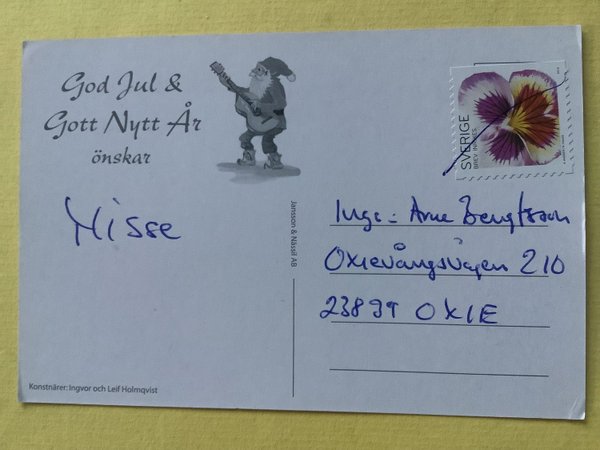 God Jul &
Gott Nytt År
önskar
Nisse
Konstnärer: Ingvor och Leif Holmqvist
Jansson & Nässil AB
SVERIGE
BREV INRIKES
Inge - Arne Bengtsson
Oxievångsvägen 210
23839 OXIE